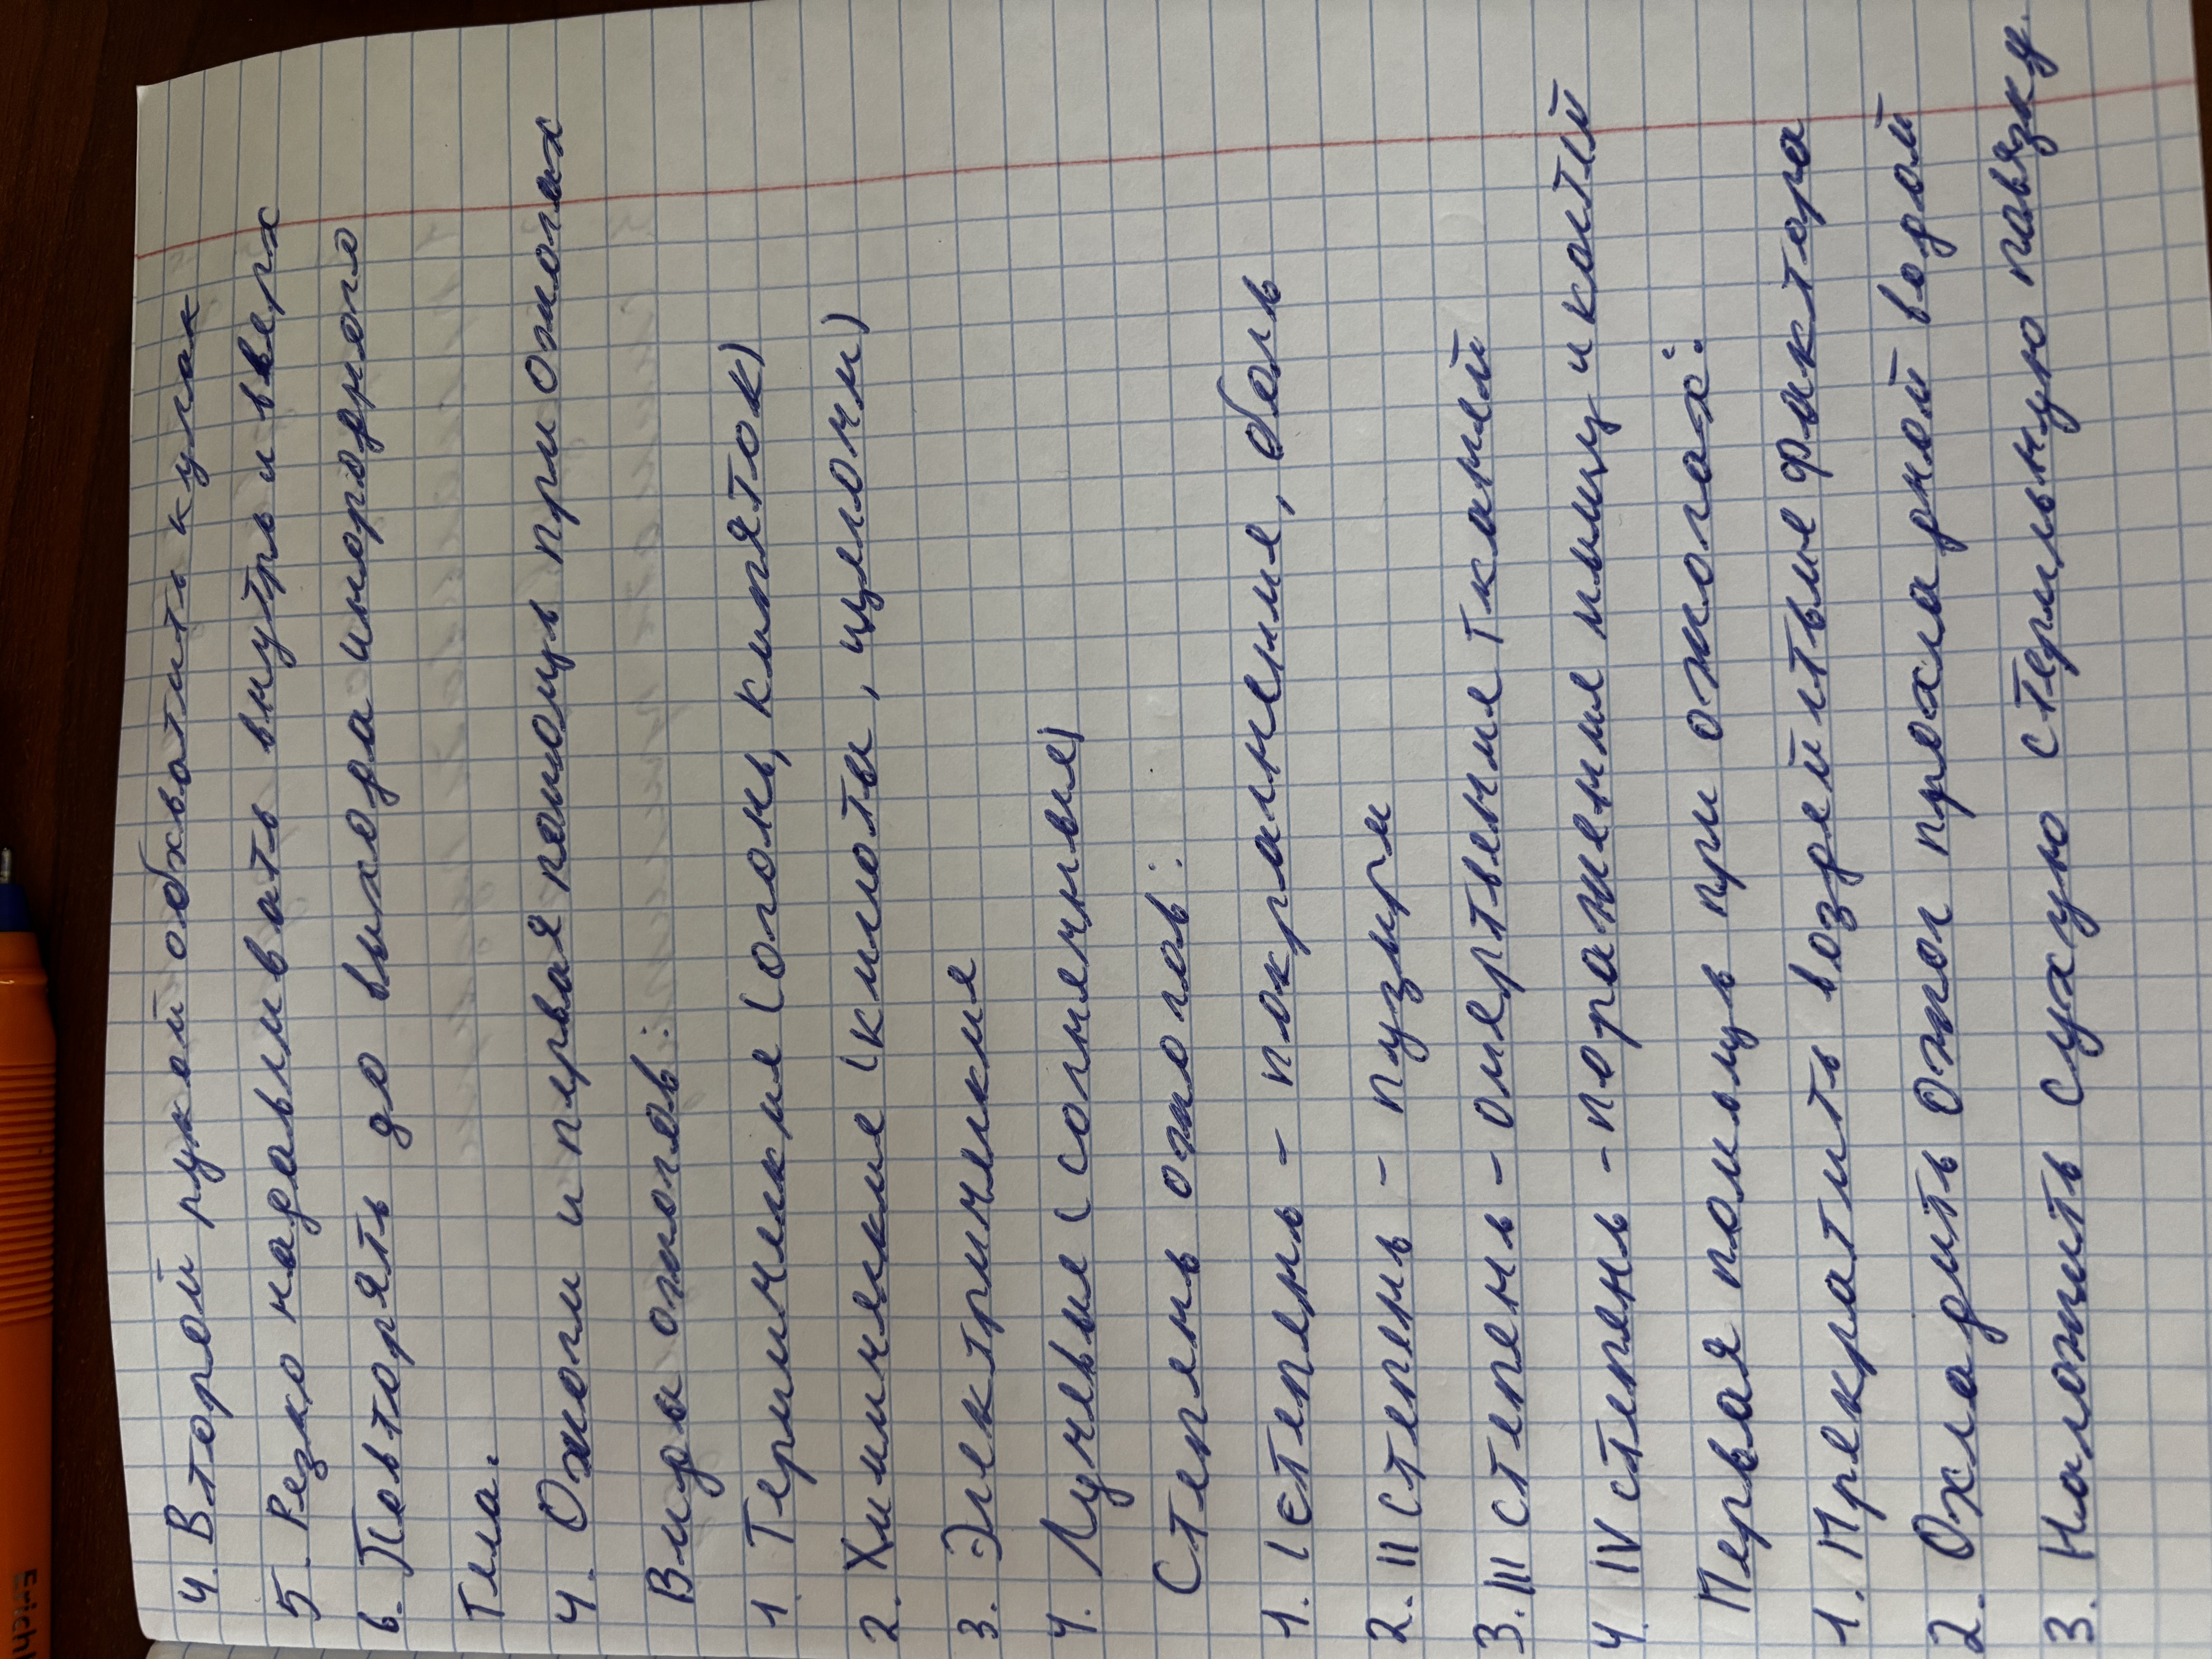 4. Второй рукой обхватить кулак
5. Резко надавливать внутрь и вверх
6. Повторять до выхода инородного
тела.
4. Ожоги и первая помощь при ожогах
Виды ожогов:
1. Термические (огонь, кипяток)
2. Химические (кислоты, щелочи)
3. Электрические
4. Лучевые (солнечные)
Степень ожогов:
1. I степень - покраснение, боль
2. II степень - пузыри
3. III степень - омертвение тканей
4. IV степень - поражение мышц и костей
Первая помощь при ожогах:
1. Прекратить воздействие фактора
2. Охладить ожог прохладной водой
3. Наложить сухую стерильную повязку.
Erich